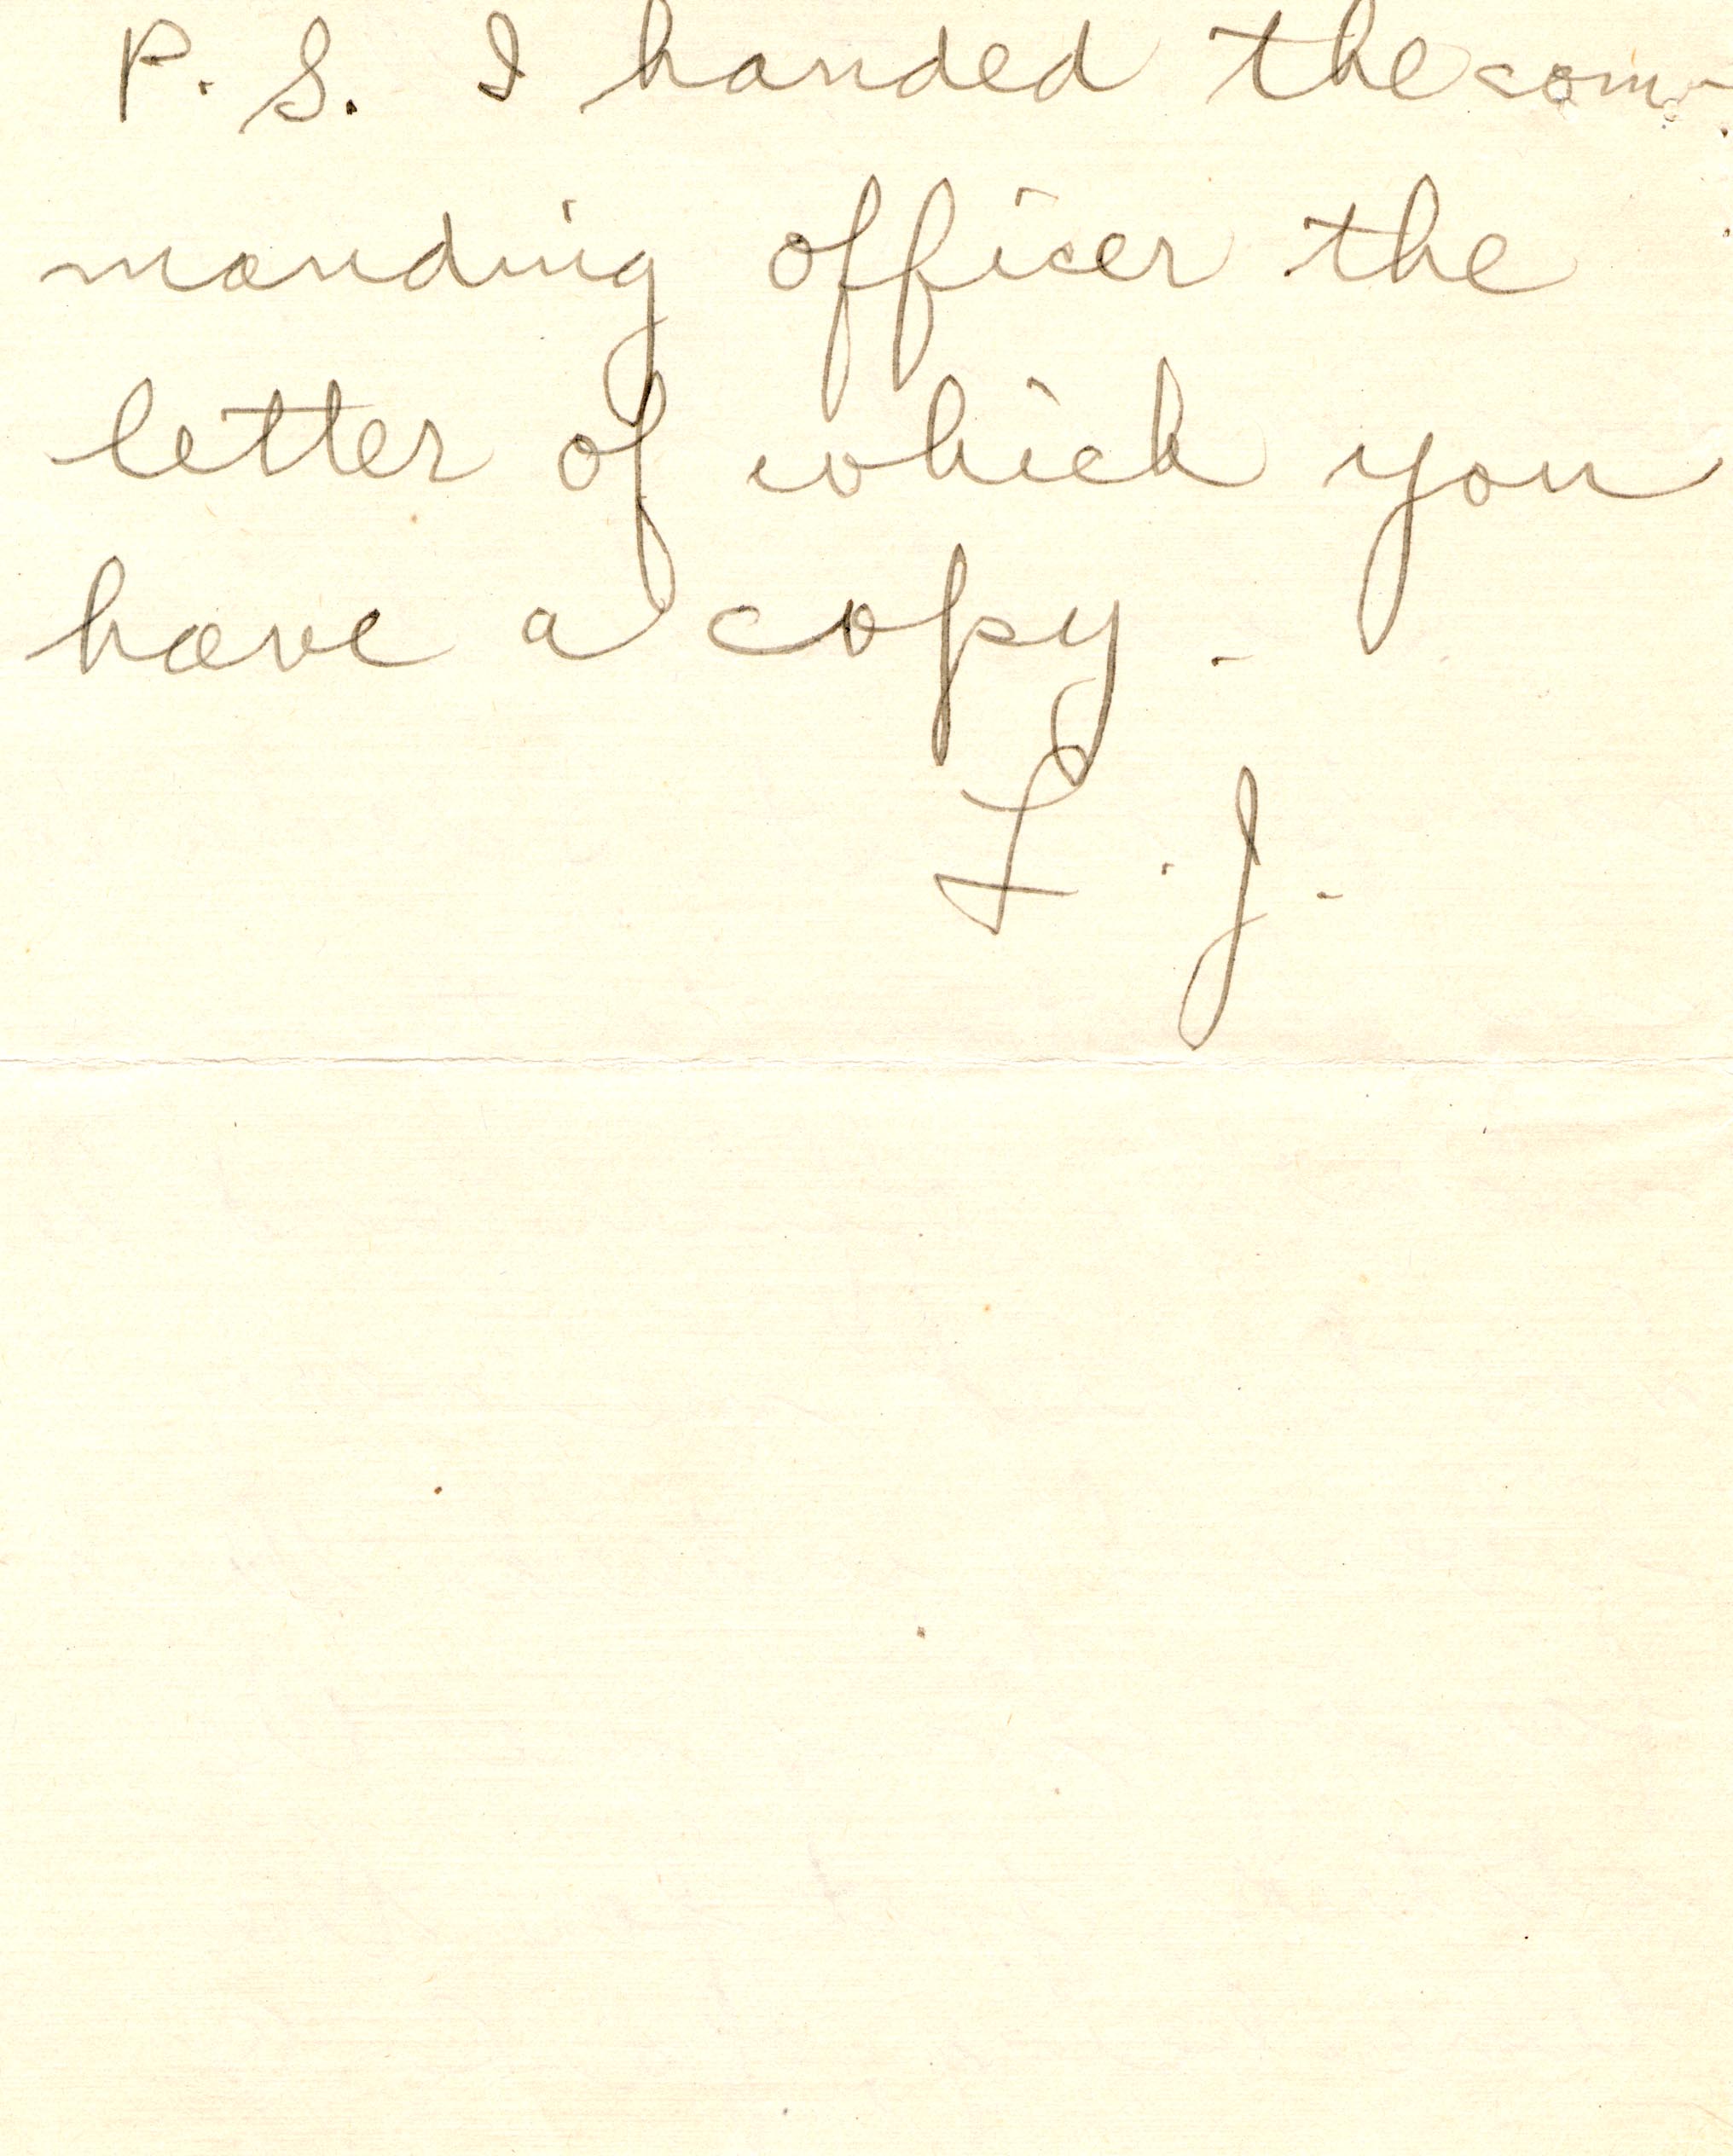 P. S. I handed the com-
manding officer the
letter of which you
have a copy.
L. J.